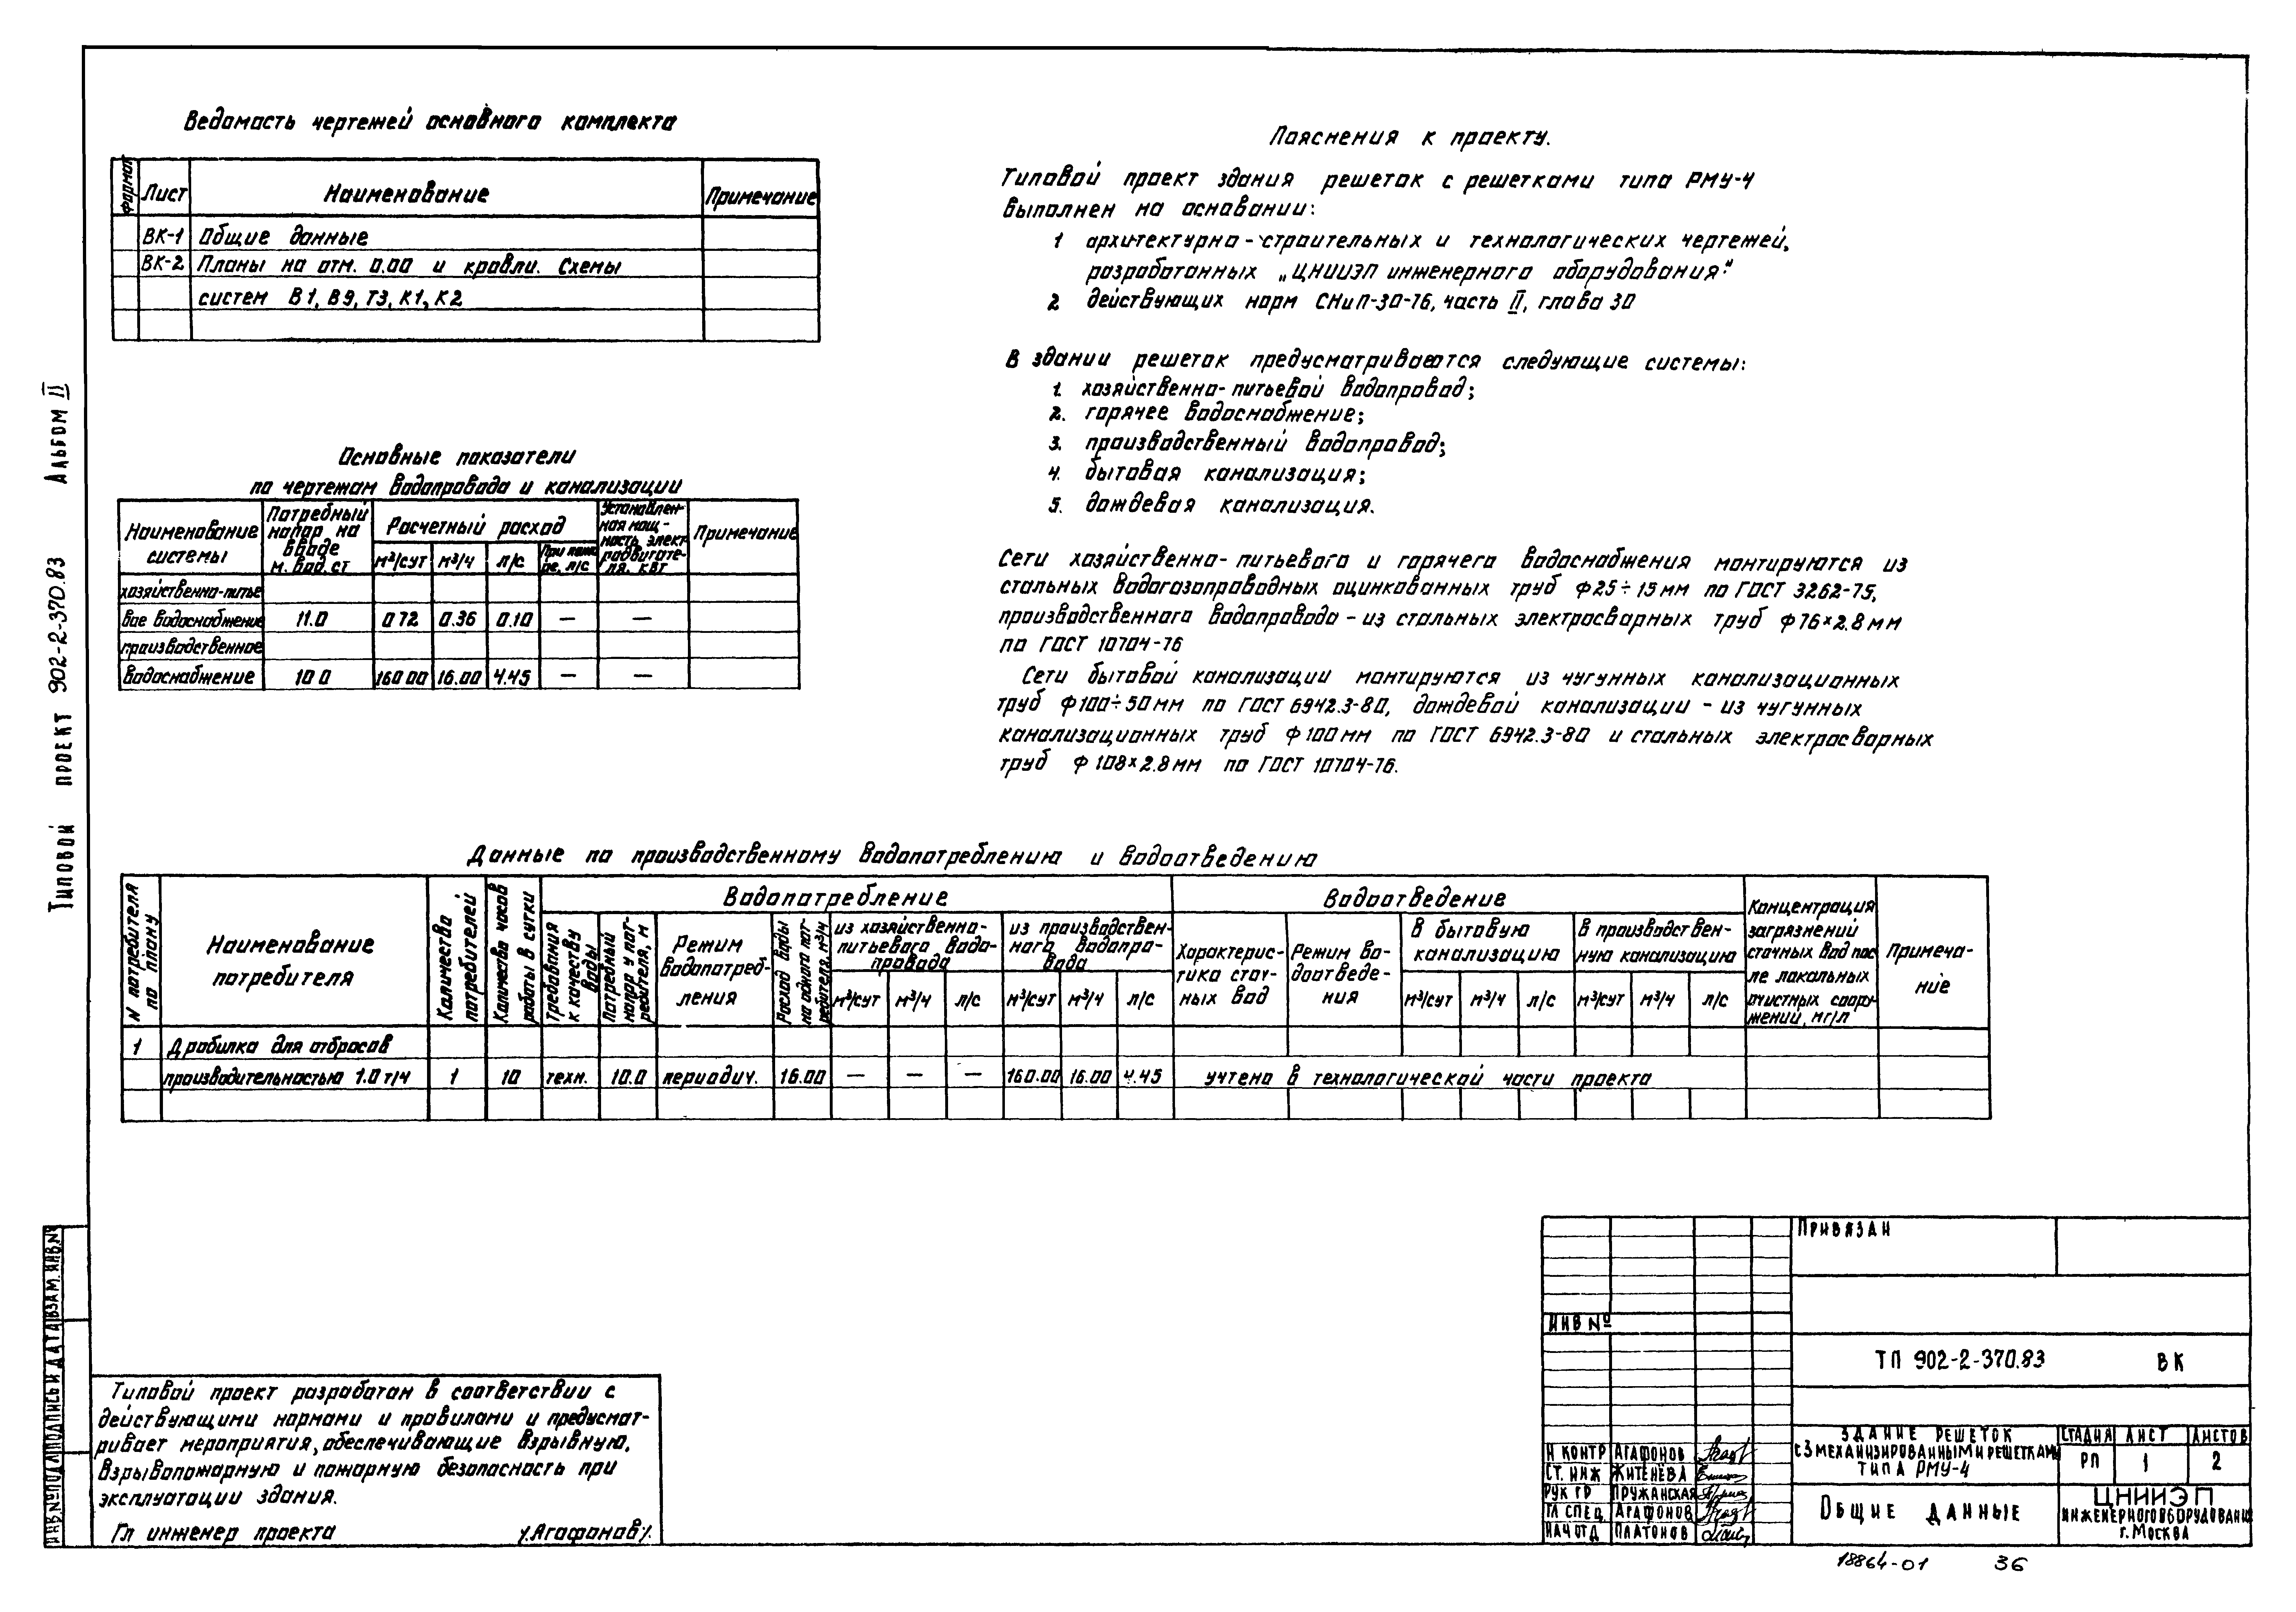 Ведомость чертежей основного комплекта
Формат Лист Наименование Примечание
ВК-1 Общие данные
ВК-2 Планы на отм. 0.00 и кровли. Схемы
систем В1, В9, Т3, К1, К2
Основные показатели
по чертежам водопровода и канализации
Наименование системы
Потребный напор на вводе м. вод. ст
Расчетный расход
м³/сут м³/ч л/с При пожаре, л/с
Установленная мощность электродвигателя, квт
Примечание
хозяйственно-питье
вое водоснабжение 11.0 0 72 0.36 0.10 — —
производственное
водоснабжение 10 0 160 00 16.00 4.45 — —
Пояснения к проекту.
Типовой проект здания решеток с решетками типа РМУ-4
выполнен на основании:
1 архитектурно-строительных и технологических чертежей,
разработанных „ЦНИИЭП инженерного оборудования."
2 действующих норм СНиП-30-76, часть II, глава 30
В здании решеток предусматриваются следующие системы:
1. хозяйственно-питьевой водопровод;
2. горячее водоснабжение;
3. производственный водопровод;
4. бытовая канализация;
5. дождевая канализация.
Сети хозяйственно-питьевого и горячего водоснабжения монтируются из
стальных водогазопроводных оцинкованных труб ф25÷15мм по ГОСТ 3262-75,
производственного водопровода – из стальных электросварных труб ф76×2.8мм
по ГОСТ 10704-76
Сети бытовой канализации монтируются из чугунных канализационных
труб ф100÷50мм по ГОСТ 6942.3-80, дождевой канализации – из чугунных
канализационных труб ф100мм по ГОСТ 6942.3-80 и стальных электросварных
труб ф108×2.8мм по ГОСТ 10704-76.
Данные по производственному водопотреблению и водоотведению
N потребителя по плану
Наименование потребителя
Количество потребителей
Количество часов работы в сутки
Водопотребление
Требования к качеству воды
Потребный напор у потребителя, м
Режим водопотребления
Расход воды на одного потребителя, м³/ч
из хозяйственно-питьевого водопровода
м³/сут м³/ч л/с
из производственного водопровода
м³/сут м³/ч л/с
Водоотведение
Характеристика сточных вод
Режим водоотведения
в бытовую канализацию
м³/сут м³/ч л/с
в производственную канализацию
м³/сут м³/ч л/с
Концентрация загрязнений сточных вод после локальных очистных сооружений, мг/л
Примечание
1 Дробилка для отбросов
производительностью 1.0 т/ч 1 10 техн. 10.0 периодич. 16.00 — — — 160.00 16.00 4.45 учтено в технологической части проекта
Типовой проект 902-2-370.83 Альбом II
ИНВ.№ПОДЛ ПОДПИСЬ И ДАТА ВЗАМ. ИНВ.№
Типовой проект разработан в соответствии с
действующими нормами и правилами и предусмат-
ривает мероприятия, обеспечивающие взрывную,
взрывопожарную и пожарную безопасность при
эксплуатации здания.
Гл инженер проекта /.Агафонов/.
ПРИВЯЗАН
ИНВ №
ТП 902-2-370.83 ВК
Н КОНТР АГАФОНОВ
СТ. ИНЖ ЖИТЕНЁВА
РУК ГР ПРУЖАНСКАЯ
ГЛ СПЕЦ АГАФОНОВ
НАЧ ОТД ПЛАТОНОВ
ЗДАНИЕ РЕШЕТОК
С 3 МЕХАНИЗИРОВАННЫМИ РЕШЕТКАМИ
ТИПА РМУ-4
СТАДИЯ ЛИСТ ЛИСТОВ
РП 1 2
ОБЩИЕ ДАННЫЕ
ЦНИИЭП
ИНЖЕНЕРНОГО ОБОРУДОВАНИЯ
г. МОСКВА
18864-01 36